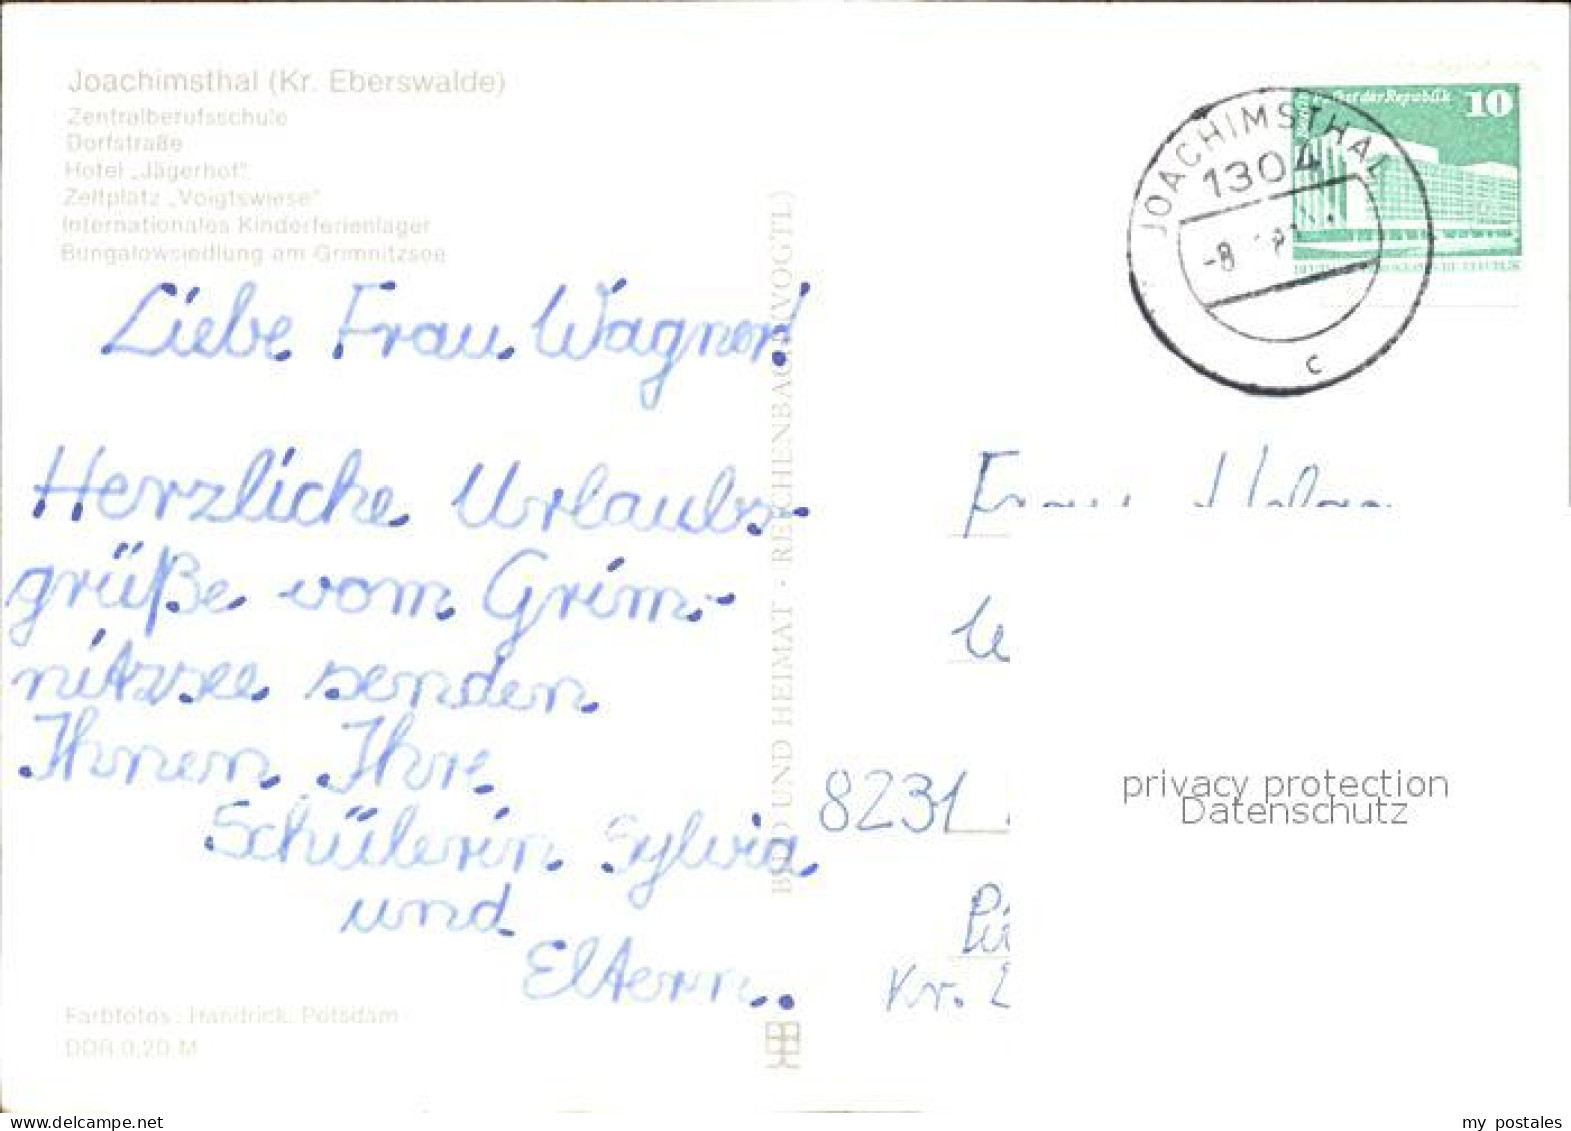 Joachimsthal (Kr. Eberswalde)
Zentralberufsschule
Dorfstraße
Hotel „Jägerhof"
Zeltplatz „Voigtswiese"
Internationales Kinderferienlager
Bungalowsiedlung am Grimnitzsee
Liebe Frau Wagner!
Herzliche Urlaubs-
grüße vom Grim-
nitzsee senden
Ihnen Ihre
Schülerin Sylvia
und
Eltern.
Farbfotos: Handrick, Potsdam
DDR 0,20 M
BILD UND HEIMAT · REICHENBACH (VOGTL)
JOACHIMSTHAL
1304
-8
c
der Republik 10
Frau
8231
Kr.
privacy protection
Datenschutz
eBay.de/str/ansichtskartenlexikon
my postales